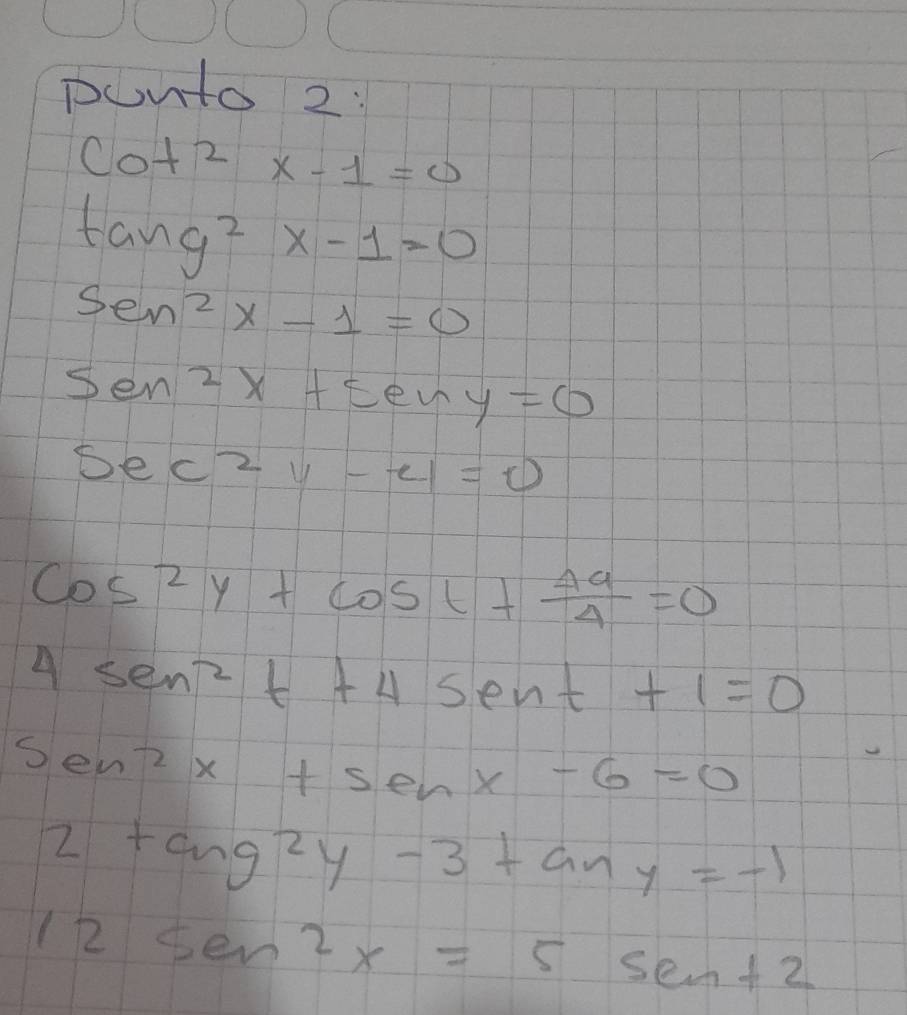 punto 2:
Cot² x - 1 = 0
tang² x - 1 = 0
Sen² x - 1 = 0
Sen² x + sen y = 0
Sec² y - 4 = 0
Cos² y + cos t + 49/4 = 0
4 sen² t + 4 sent + 1 = 0
Sen² x + senx - 6 = 0
2 tang² y - 3 tan y = -1
12 sen² x = 5 sen + 2